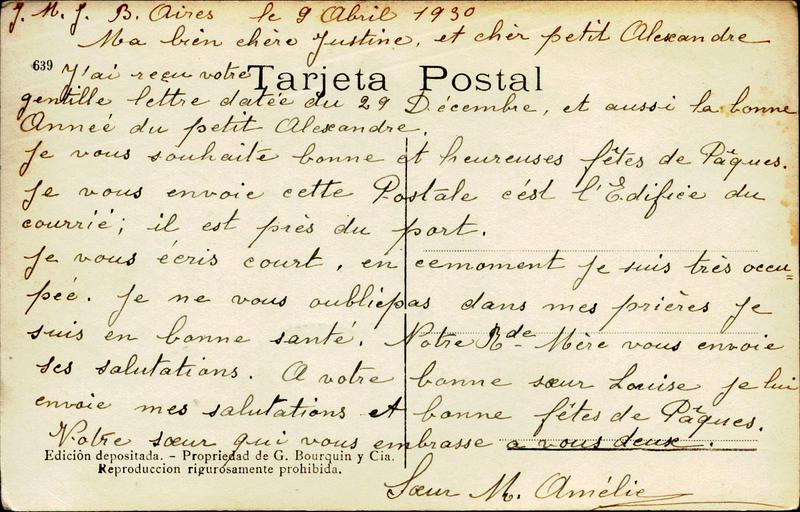 J. M. J. B. Aires le 9 Abril 1930
Ma bien chère Justine, et chèr petit Alexandre
639 J'ai reçu votre
Tarjeta Postal
gentille lettre datée du 29 Décembre, et aussi la bonne
Anneé du petit Alexandre.
Je vous souhaite bonne et heureuses fêtes de Pâques.
Je vous envoie cette Postale c'ést l'Edifice du
courrié; il est près du port.
Je vous écris court, en cemoment je suis très occu=
pée. Je ne vous oubliepas dans mes prières je
suis en bonne santé. Notre Rde Mère vous envoie
ses salutations. A votre bonne sœur Louise je lui
envoie mes salutations et bonne fêtes de Pâques.
Notre sœur qui vous embrasse a vous deux.
Edición depositada. - Propriedad de G. Bourquin y Cia.
Reproduccion rigurosamente prohibida.
Sœur M. Amélie